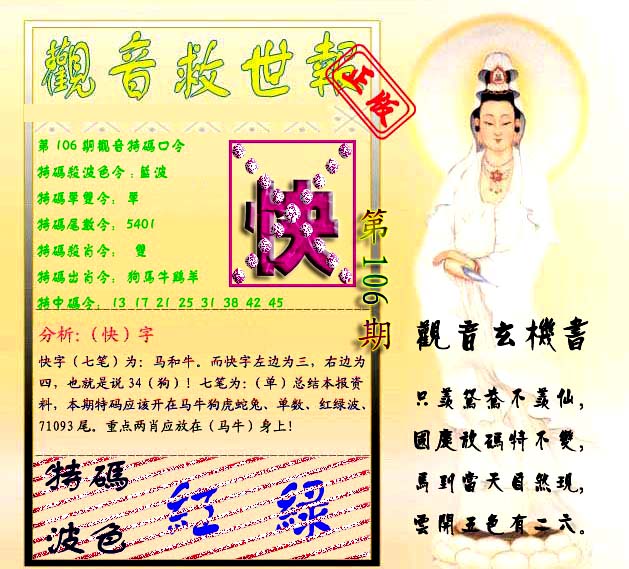 觀音救世報
正版
第106期觀音特碼口令
特碼殺波色令:藍波
特碼單雙令: 單
特碼尾數令: 5401
特碼殺肖令: 雙
特碼出肖令: 狗馬牛鷄羊
特中碼令: 13 17 21 25 31 38 42 45
快
第106期
分析:(快)字
快字(七笔)为:马和牛。而快字左边为三,右边为
四,也就是说34(狗)!七笔为:(单)总结本报资
料,本期特码应该开在马牛狗虎蛇兔、单数、红绿波、
71093尾。重点两肖应放在(马牛)身上!
特碼
波色
紅 綠
觀音玄機書
只羡鴛鴦不羡仙,
國慶放碼特不變,
馬到當天自然現,
雲開五色有二六。